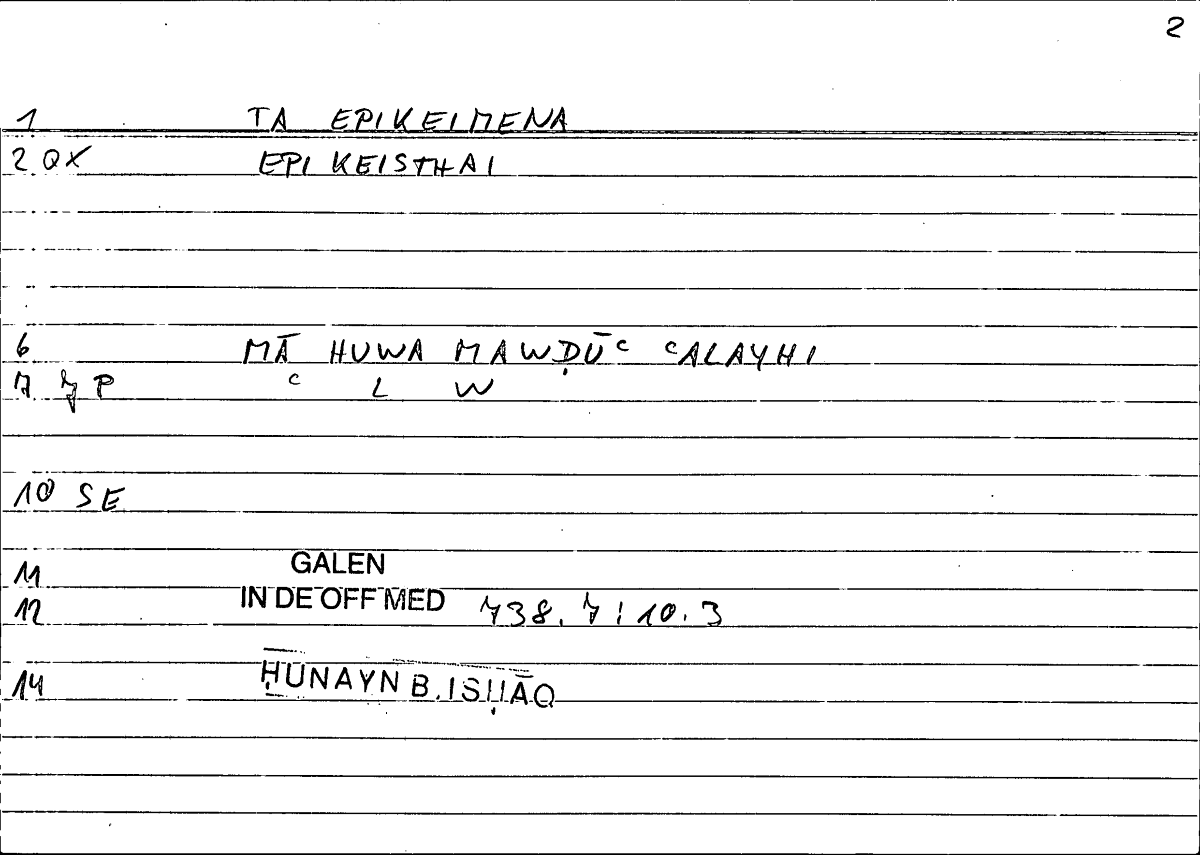 2
1 TA EPIKEIMENA
2 QX EPIKEISTHAI
6 MĀ HUWA MAWḌŪC CALAYHI
7 7 P C L W
10 SE
11 GALEN
12 IN DE OFF MED 738.7 ; 10.3
14 ḤUNAYN B. ISḤĀQ